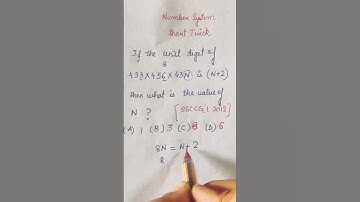 Number System
Short Trick
If the unit digit of
8
433×456×43N is (N+2)
then what is the value of
N ? [SSC CGL 2018]
(A) 1 (B) 3 (C) 8 (D) 6
8N = N+2
8